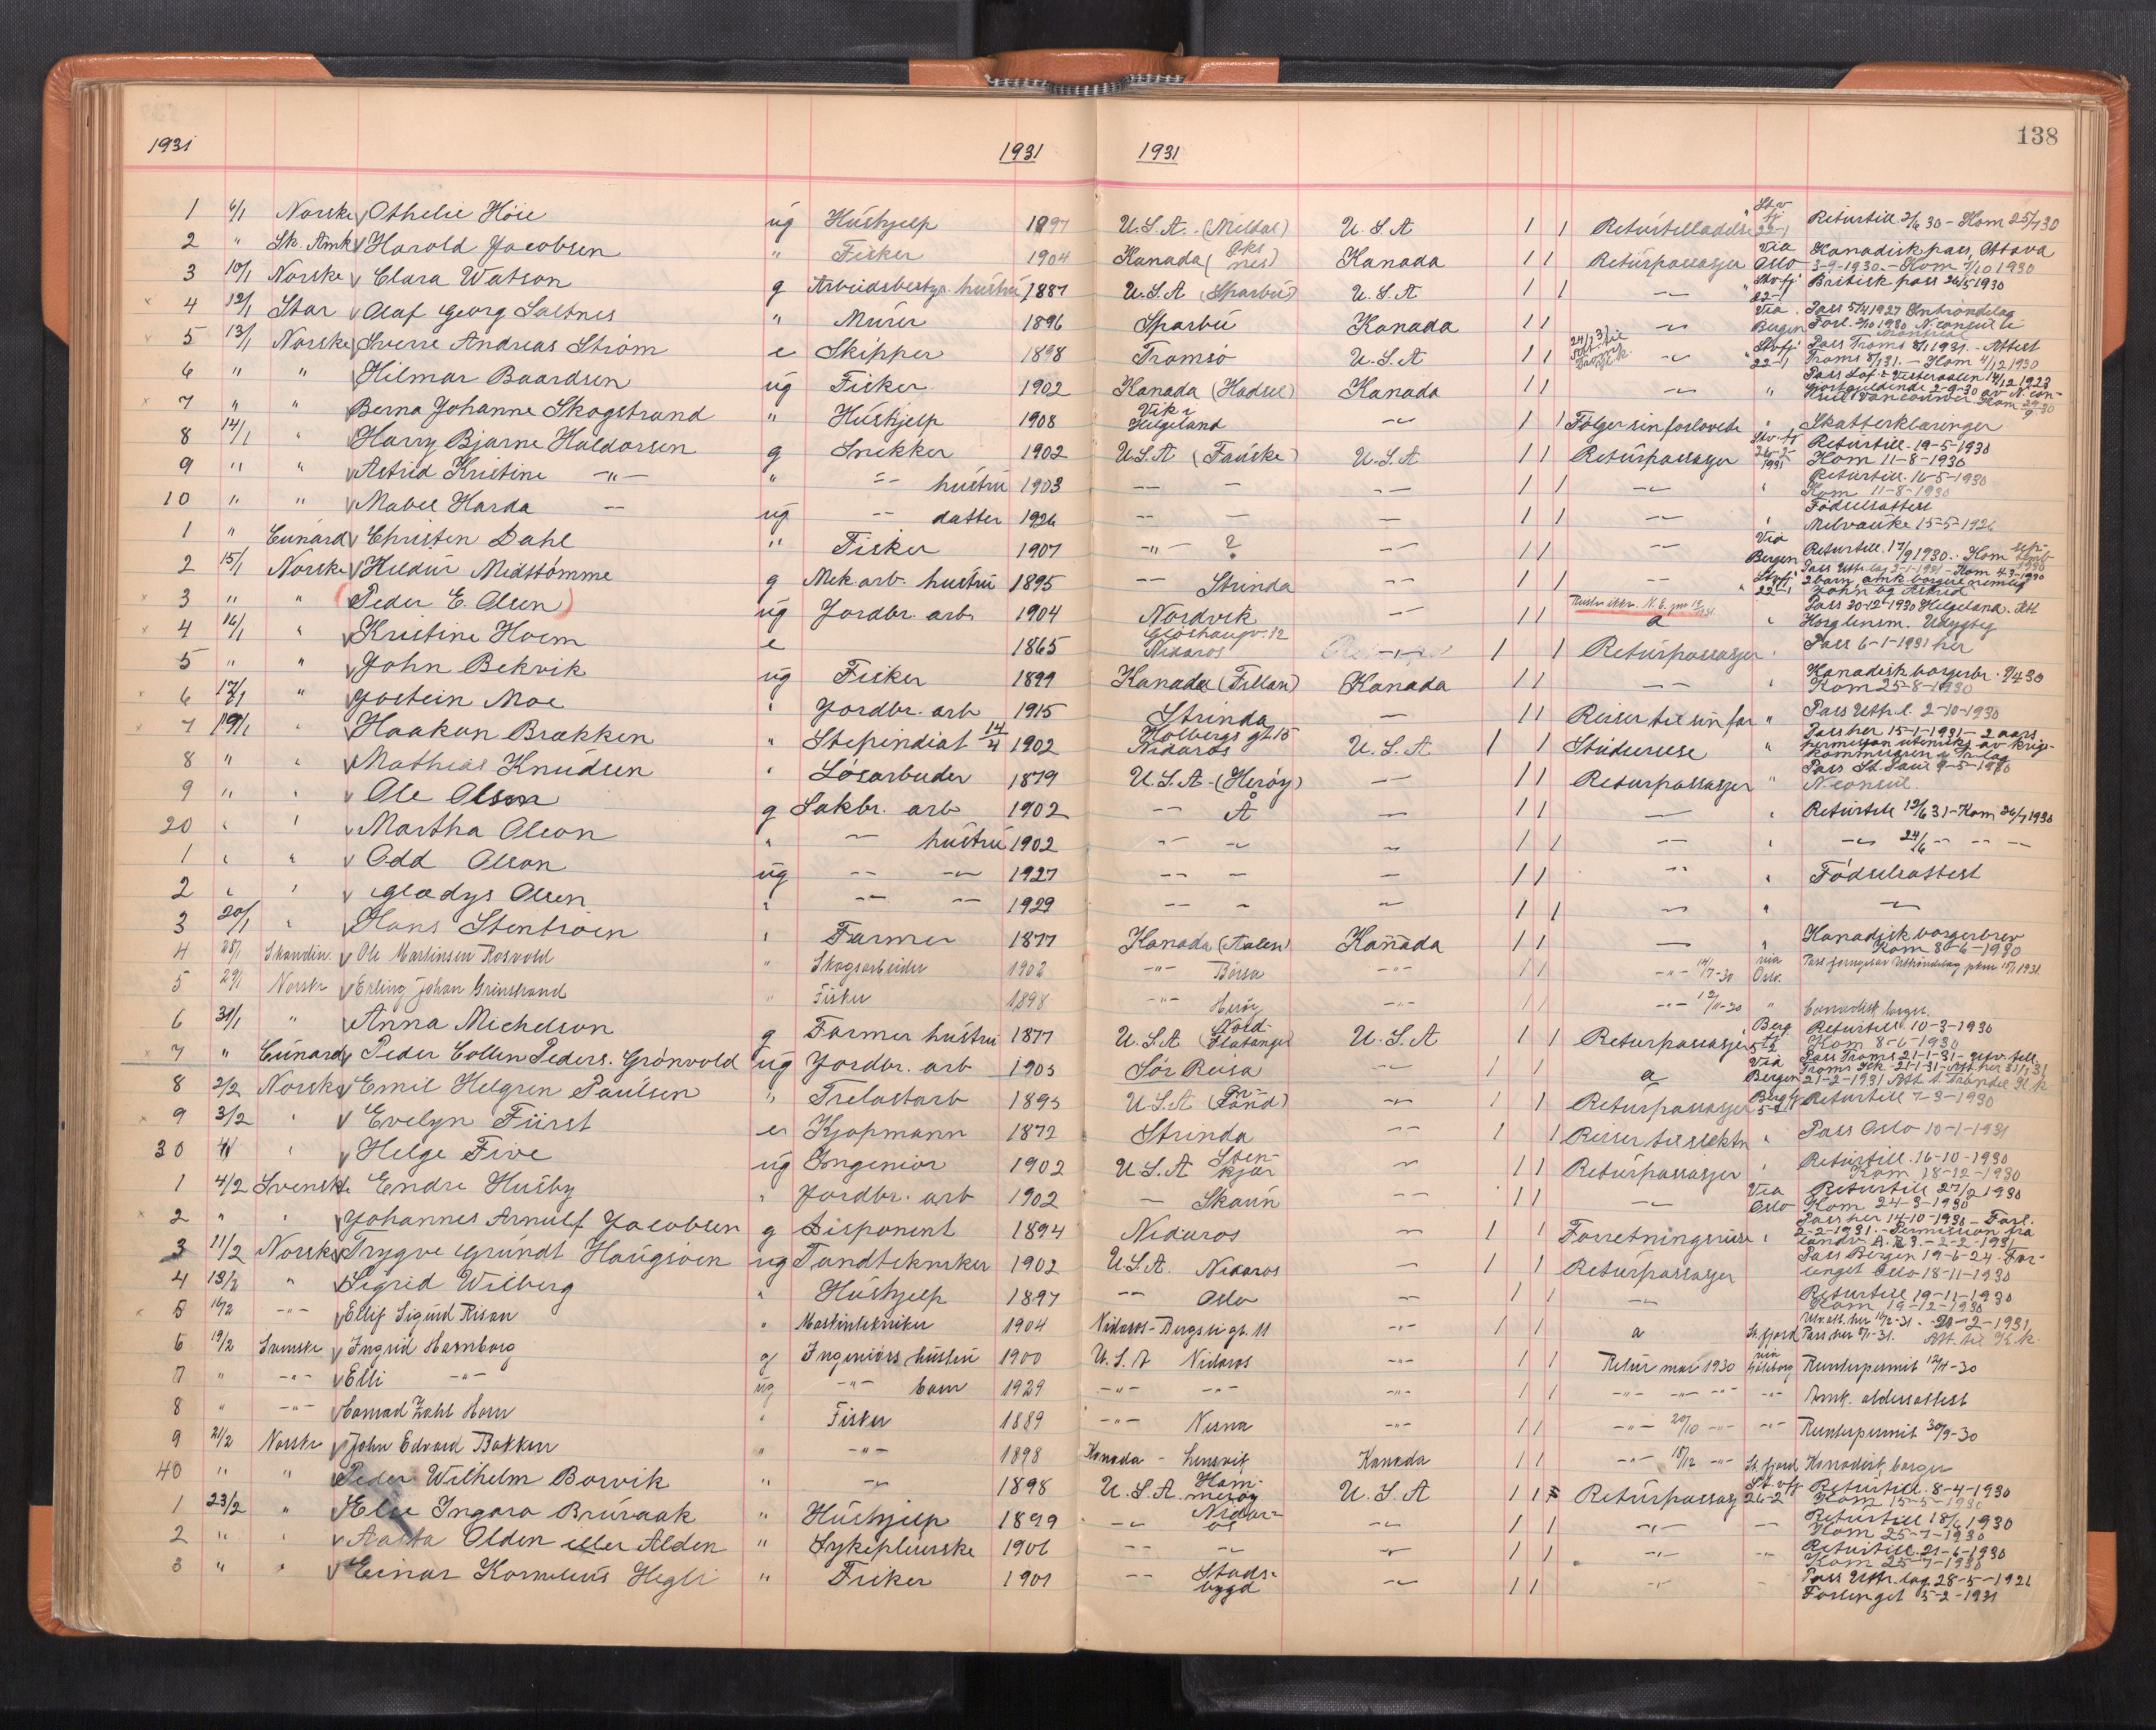 138
1931 1931 1931
1 6/1 Norske Othelie Höie ug Hushjelp 1897 U.S.A. (Meldal) U.S.A 1 1 Returtilladelse St.v fj 22-1 Returtill. 2/6 30 - Kom 25/7 30
2 " Sk. Amk Harold Jacobsen " Fisker 1904 Kanada (Oks nes) Kanada 1 1 Returpassasjer via Oslo Kanadisk pass, Ottava 3-9-1930. - Kom 7/10 1930
3 10/1 Norske Clara Watson g Arbeidsbestyr. hustru 1887 U.S.A (Sparbu) U.S.A 1 1 -"- Stvfj 22-1 Britisk pass 26/5 1930
4 12/1 Star Olaf Georg Saltnes " Murer 1896 Sparbu Kanada 1 1 -"- Via Bergen Pass 5/4 1927 Inntröndelag Forl. 2/10 1930 N. consul i Montreal
5 13/1 Norske Sverre Andreas Ström e Skipper 1898 Tromsö U.S.A 1 1 -"- Stvfj 22-1 Pass Troms 8/1 1931. - Attest Troms 8/1 31. - Kom 4/12 1930
6 " " Hilmar Baardsen ug Fisker 1902 Kanada (Hadsel) Kanada 1 1 -"- " Pass Lof. & Vesteraalen 14/12 1923 Gjort gjeldende 2-9-30 av N. con- sul Vancouver. Kom 29/9-30
7 " " Berna Johanne Skogstrand " Hushjelp 1908 Vik i Helgeland -"- 1 1 Följer sin forlovede " Skatterklæringer
8 14/1 " Harry Bjarne Haldorsen g Snekker 1902 U.S.A (Fauske) U.S.A 1 1 Returpassasjer Stv-fj 26-2 1931 Returtill. 19-5-1930 Kom 11-8-1930
9 " " Astrid Kristine -"- " -"- hustru 1903 -"- - -"- 1 1 -"- " Returtill. 16-5-1930 Kom 11-8-1930
10 " " Mabel Harda - ug -"- datter 1926 -- - - 1 1 -"- " Födselsattest Milvauke 15-5-1926
1 " Cunard Christen Dahl " Fisker 1907 -"- ? -"- 1 1 -"- Via Bergen Returtill. 17/9 1930. Kom septemb 1930
2 15/1 Norske Hildur Midttömme g Mek. arb. hustru 1895 -"- Strinda -"- 1 1 -- Stvfj 22-1 Pass Uttr.lag 2-1-1931 - Kom 4-3-1930 2 barn, amk. borgere nemlig John og Astrid
3 " " (Peder E. Olsen) ug Jordbr. arb. 1904 Nordvik -"- 1 1 a " Pass 30-12-1930 Helgeland.
4 16/1 " Kristine Hoem e 1865 Glöshaugv. 12 Nidaros -"- 1 1 Returpassasjer " Pass 6-1-1931 her
5 " " John Bekvik ug Fisker 1899 Kanada (Fillan) Kanada 1 1 -- " Kanadisk borgerbr. 7/4 30 Kom 25-8-1930
6 17/1 " Jostein Moe " Jordbr. arb 1915 Strinda - 1 1 Reiser til sin far " Pass Uttr.l. 2-10-1930
7 19/1 " Haakon Brækken " Stipendiat 14/4 1902 Holbergs gt. 15 Nidaros U.S.A 1 1 Studiereise " Pass her 15-1-1931 - 2 aars permisjon
8 " " Mathias Knudsen " Lösarbeider 1879 U.S.A - (Heröy) -- 1 1 Returpassasjer " Pass St. Paul 9-5-1930 N. consul.
9 " " Ole Olson g Sakbr. arb 1902 -- Å -- 1 1 - " Returtill 12/6 31 - Kom 26/7 1930
20 " " Martha Olson " - hustru 1902 -- - - 1 1 -- " -"- 24/6 -- -- --
1 " " Odd Olson ug -- -- 1927 -- - - 1 1 -- " Födselsattest
2 " " Gladys Olsen " -- -- 1929 -- - - 1 1 - " -"-
3 20/1 " Hans Stentröen " Farmer 1877 Kanada (Aalen) Kanada 1 1 - " Kanadisk borgerbrev Kom 8-6-1930
4 28/1 Skandin. Ole Martinsen Rosvold " Skogsarbeider 1902 -"- Börsa -"- 1 1 -"- 14/7-30 via Oslo.
5 29/1 Norske Erling Johan Grinstrand " Fisker 1898 -"- Heröy -"- 1 1 -"- 12/11-30 " Canadisk borger.
6 31/1 " Anna Michelson g Farmer hustru 1877 U.S.A (Nord-Flatanger) U.S.A 1 1 Returpassasjer Berg fj 5-2 Returtill. 10-3-1930 Kom 8-6-1930
7 " Cunard Peder Collin Peders. Grönvold ug Jordbr. arb 1903 Sör Reisa -"- 1 1 a Via Bergen Pass Troms 21-1-31
8 2/2 Norske Emil Helgren Paulsen " Trelastarb 1893 U.S.A -"- 1 1 Returpassasjer Bergfj 5-2 Returtill 7-3-1930
9 3/2 " Evelyn Fürst er Kjöpmann 1872 Strinda -- 1 1 Reiser til slektn " Pass Oslo 10-1-1931
30 4/ " Helge Five ug Ingeniör 1902 U.S.A Stenkjær - 1 1 Returpassasjer " Returtill. 16-10-1930 Kom 18-12-1930
1 4/2 Svenske Endre Husby " Jordbr. arb 1902 - Skaun -- 1 1 -- Via Oslo Returtill 27/2 1930 Kom 24-3-1930
2 " " Johannes Arnulf Jacobsen g Disponent 1894 Nidaros - 1 1 Forretningsreise " Pass her 14-10-1930 - Forl. 2-2-1931. - Permission fra
3 11/2 Norske Trygve Grundt Haugsöen ug Tandtekniker 1902 U.S.A. Nidaros - 1 1 Returpassasjer Pass Bergen 19-6-24. Forlenget Oslo 18-11-1930
4 13/2 " Sigrid Wilberg " Hushjelp 1897 -- Oslo - 1 1 - Returtill 19-11-1930 Kom 19-12-1930
5 16/2 -"- Ellif Sigurd Risan " Maskintekniker 1904 Nidaros - Bergsli gt. 11 -"- 1 1 a
6 19/2 Svenske Ingrid Hamborg g Ingeniörs hustru 1900 U.S.A Nidaros -"- 1 1 Retur mai 1930 via Göteborg Reenterpermit 12/4-30
7 " -"- Elli -"- ug -"- barn 1929 -"- -"- -"- 1 1 -"- -"- -"- -"- Amk. aldersattest
8 " -"- Conrad Zahl Horn " Fisker 1889 -"- Nesna -"- 1 1 -"- 20/10 -"- -"- Reenterpermit 30/9-30
9 21/2 Norske John Edvard Bakken " -"- 1898 Kanada - Lensvik Kanada 1 1 -"- 18/12 -"- St.fjord Kanadisk borger
40 " " Peder Wilhelm Borvik " -"- 1898 U.S.A. Hamneröy U.S.A 1 1 Returpassasj St.vfj 26-2 Returtill. 8-4-1930 Kom 15-5-1930
1 23/2 " Else Ingara Bruraak " Hushjelp 1899 -"- Nidaros -"- 1 1 -"- -- Returtill 18/6 1930 Kom 25-7-1930
2 " " Aasta Olden eller Alden " Sykepleierske 1906 -- -- -"- 1 1 -"- -"- Returtill. 21-6-1930 Kom 25-7-1930
3 " " Einar Kornelius Hegli " Fisker 1901 -- Stadsbygd -"- 1 1 -"- - Pass Uttr.lag. 28-5-1926 Forlenget 5-2-1931